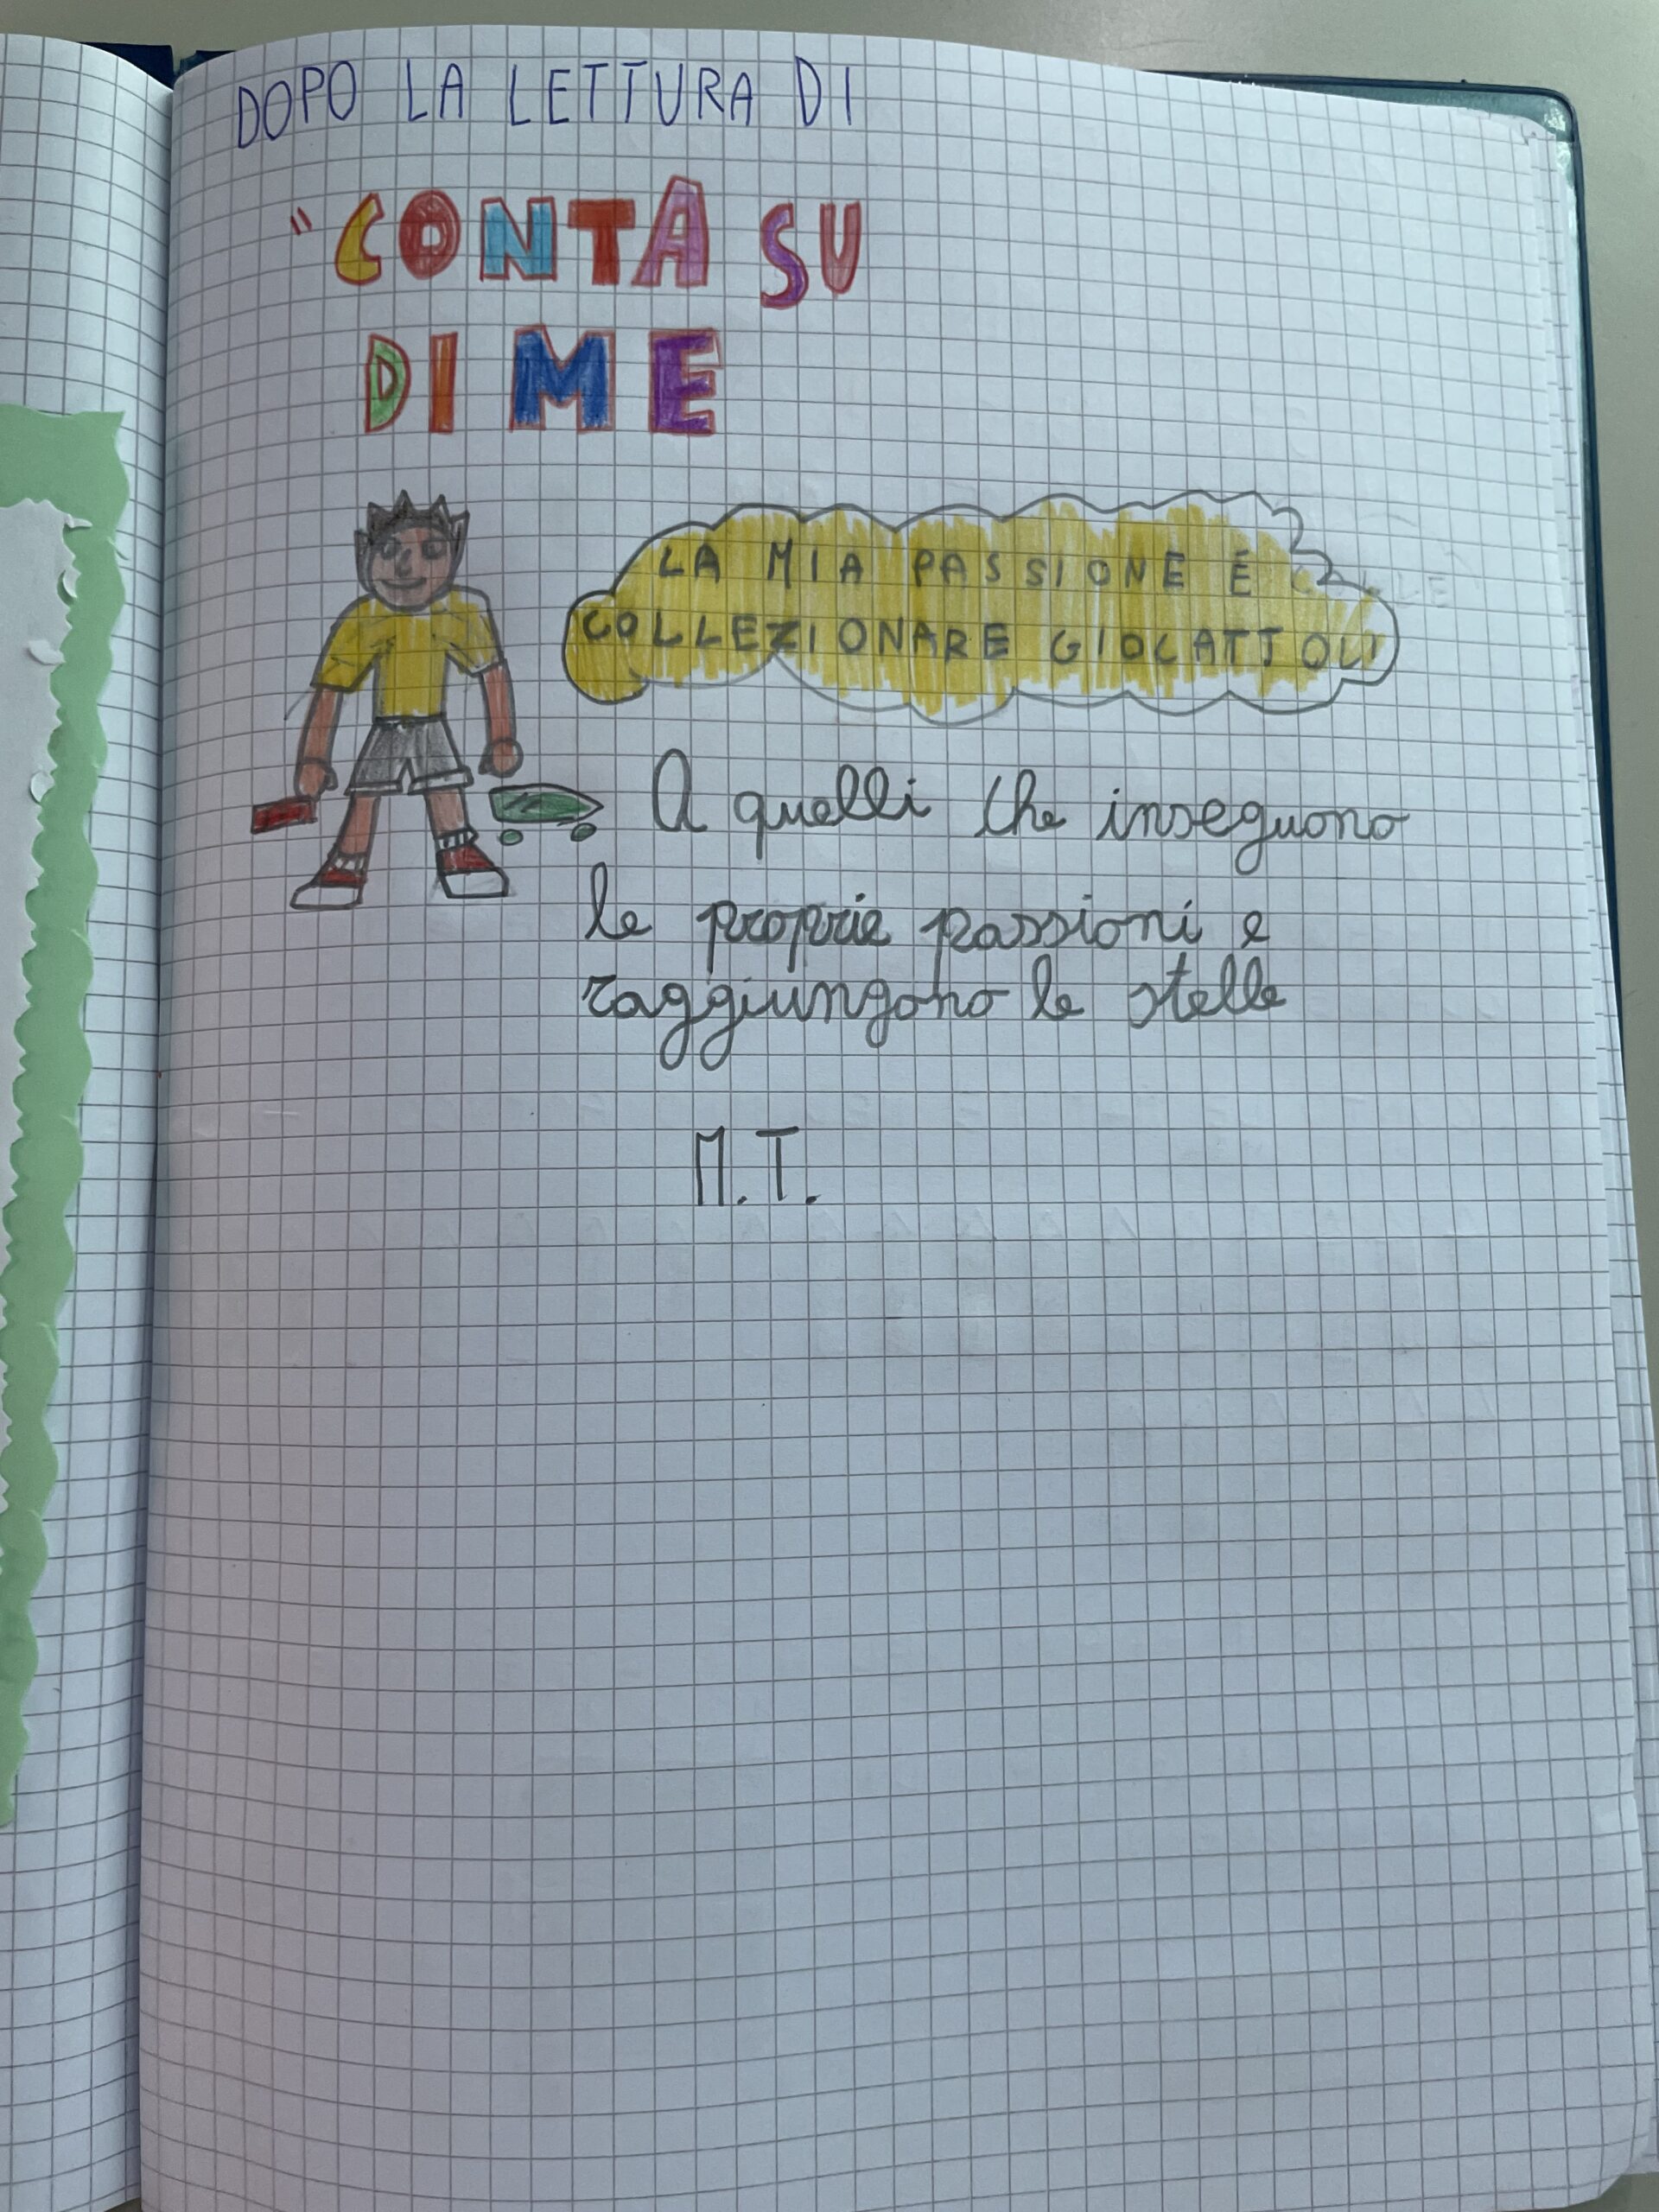 DOPO LA LETTURA DI
"CONTA SU
DI ME
LA MIA PASSIONE É
COLLEZIONARE GIOCATTOLI
A quelli che inseguono
le proprie passioni e
raggiungono le stelle
M.T.